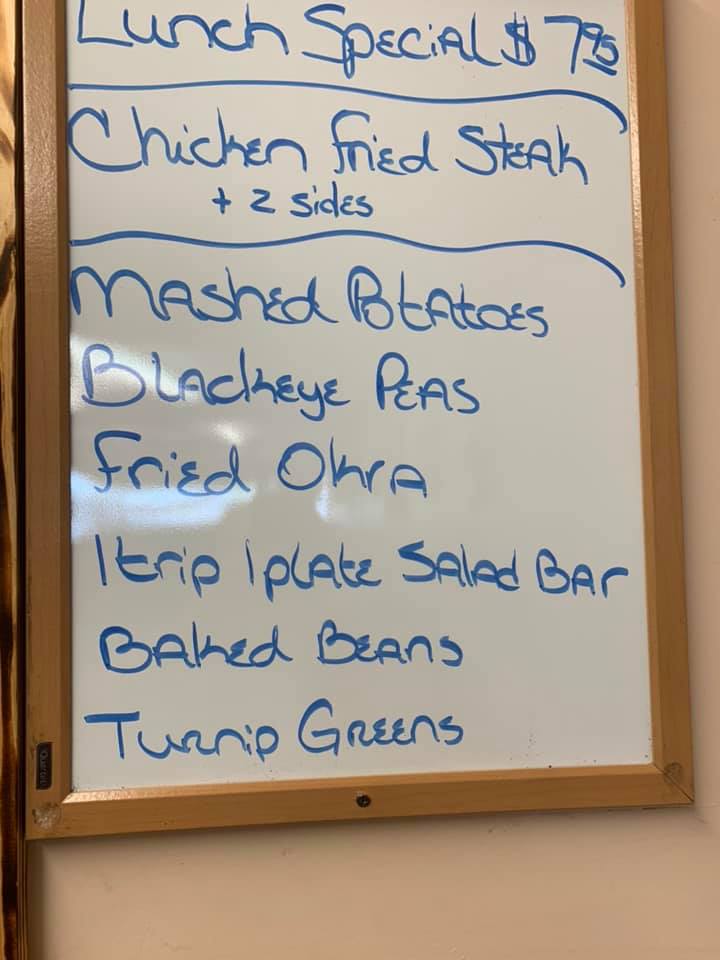 Lunch Special $ 7.95
Chicken Fried Steak
+ 2 sides
Mashed Potatoes
Blackeye Peas
Fried Okra
1 trip 1 plate Salad Bar
Baked Beans
Turnip Greens
Quartet